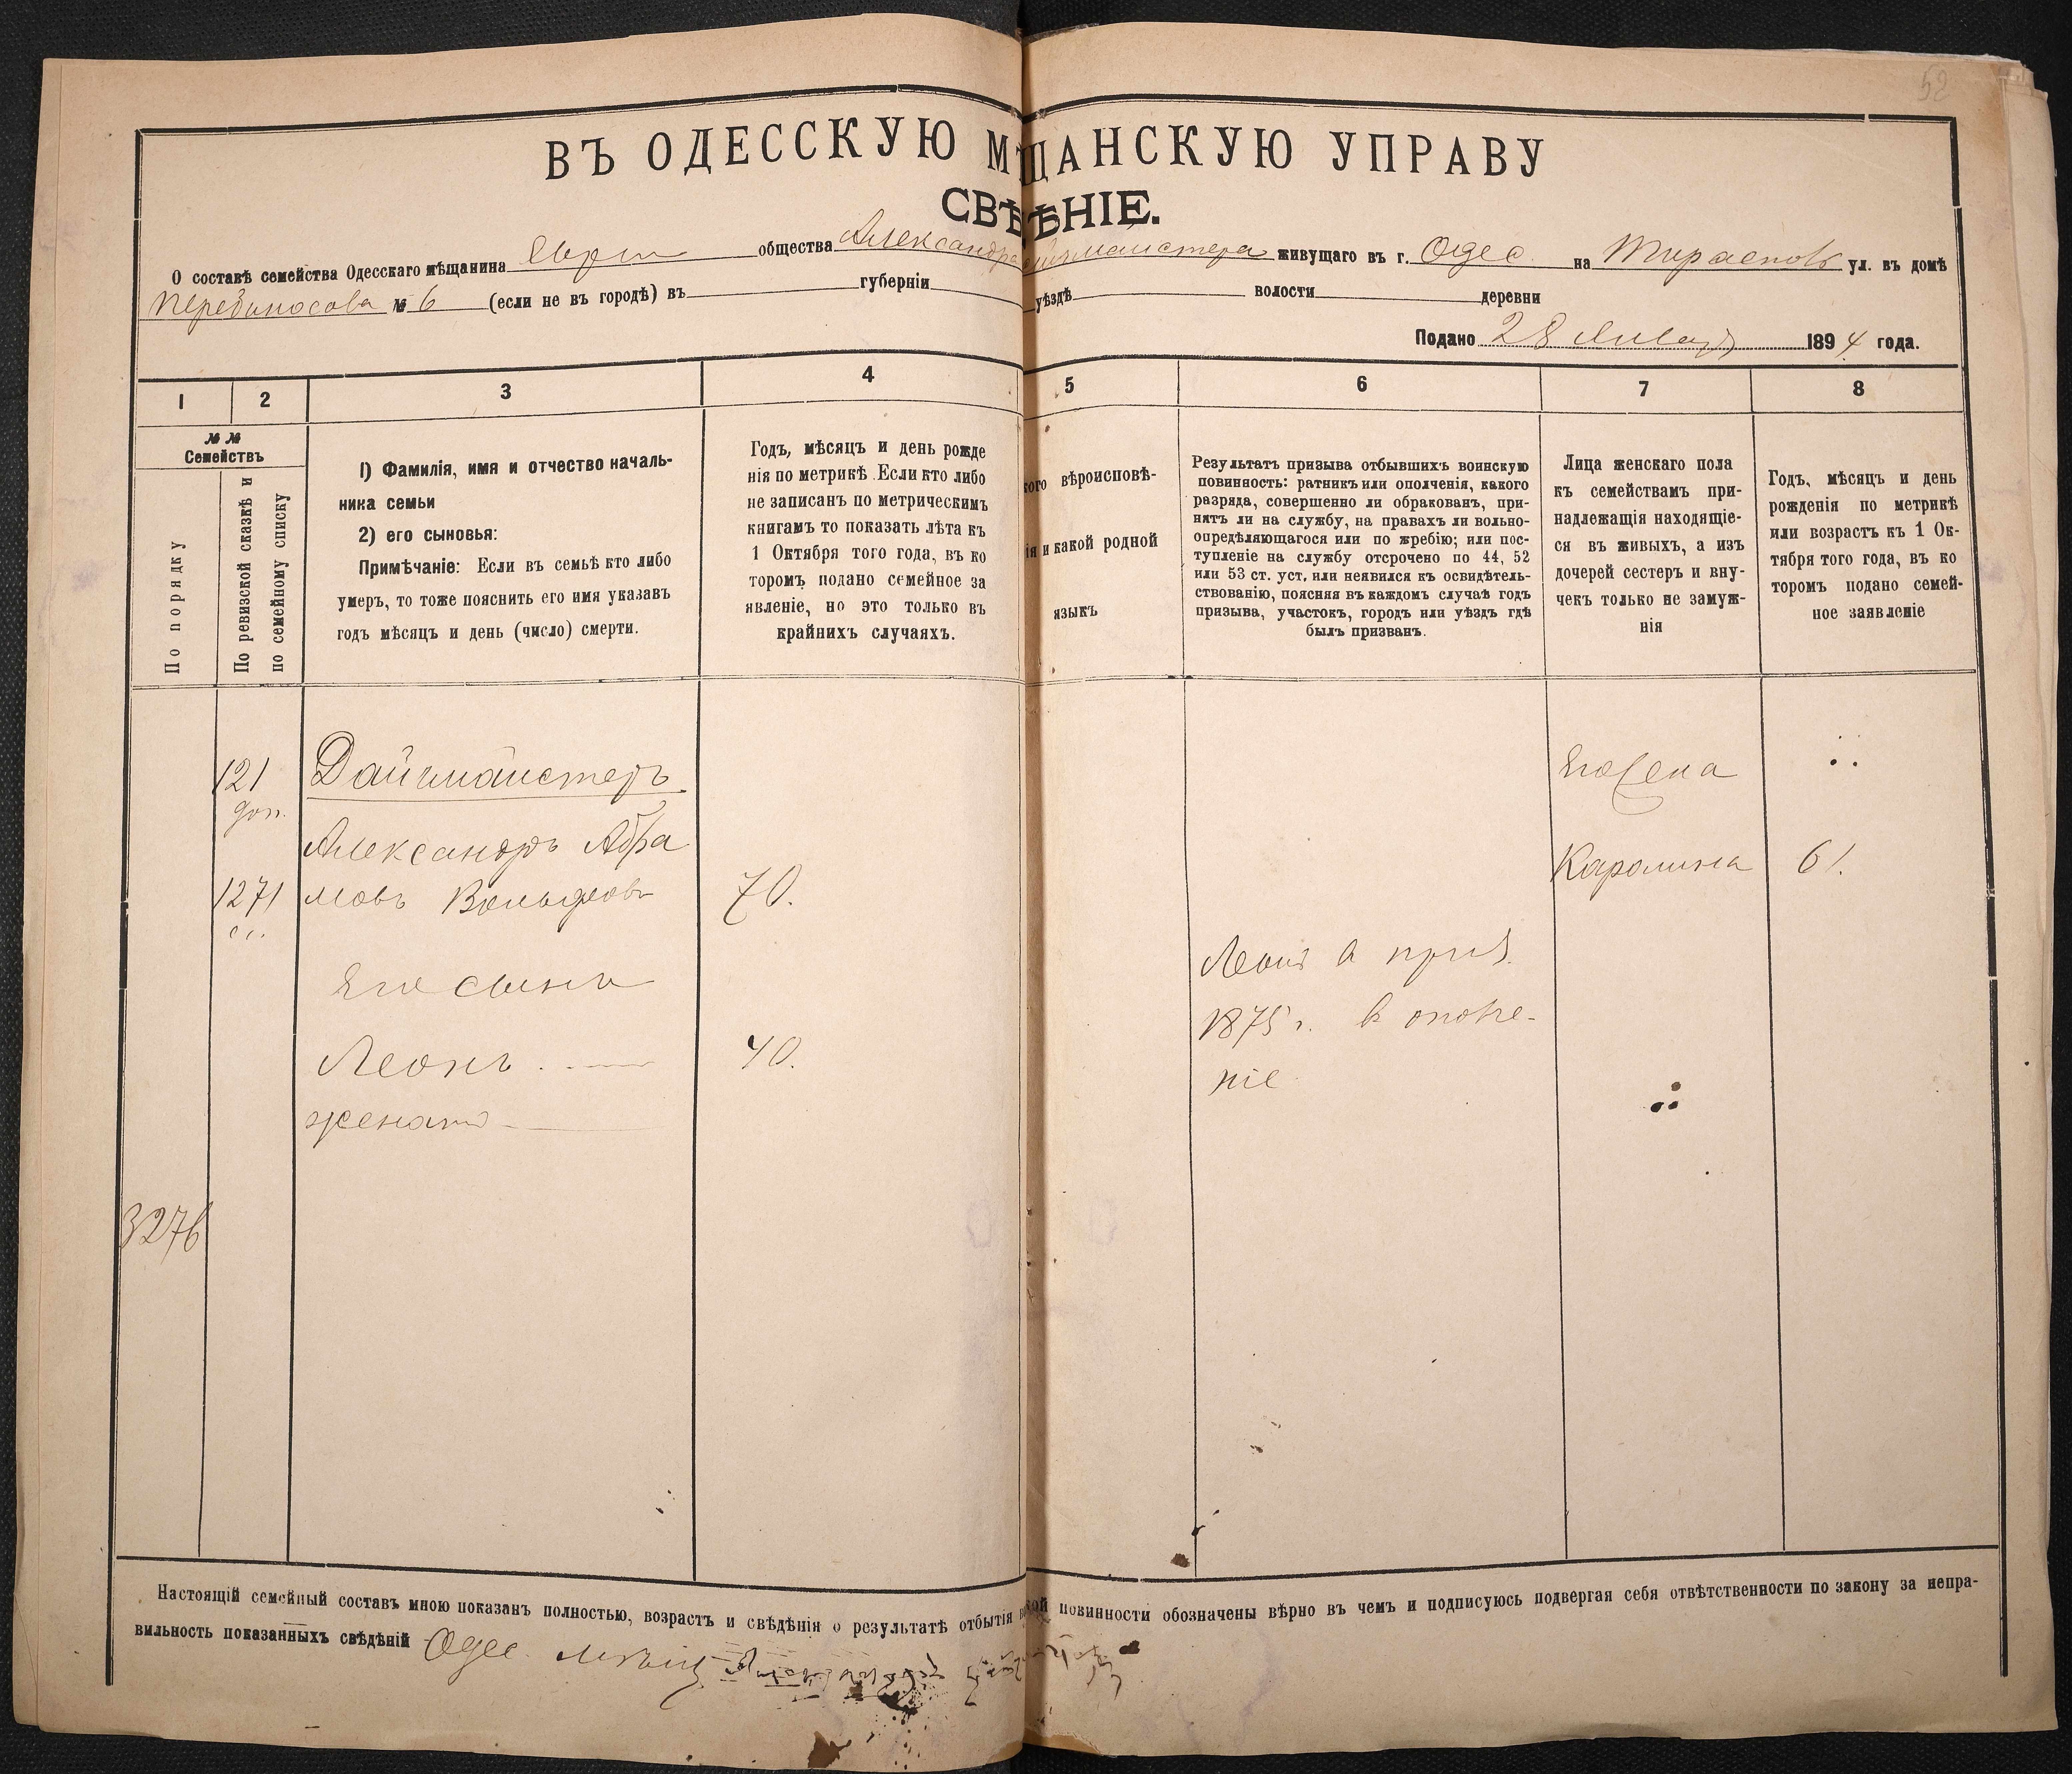 52
ВЪ ОДЕССКУЮ МѢЩАНСКУЮ УПРАВУ
СВѢДѢНІЕ.
О составѣ семейства Одесскаго мѣщанина Евр общества Александра Дайчмайстера живущаго въ г. Одес на Тираспол ул. въ домѣ
№ 6 (если не въ городѣ) въ губерніи уѣздѣ волости деревни
Подано 28 Января 1894 года.
1 2 3 4 5 6 7 8
№ №
Семействъ
По порядку
По ревизской сказкѣ и
по семейному списку
1) Фамилія, имя и отчество началь-
ника семьи
2) его сыновья:
Примѣчаніе: Если въ семьѣ кто либо
умеръ, то тоже пояснить его имя указавъ
годъ мѣсяцъ и день (число) смерти.
Годъ, мѣсяцъ и день рожде
нія по метрикѣ. Если кто либо
не записанъ по метрическимъ
книгамъ то показать лѣта къ
1 Октября того года, въ ко
торомъ подано семейное за
явленіе, но это только въ
крайнихъ случаяхъ.
кого вѣроисповѣ-
ія и какой родной
языкъ
Результатъ призыва отбывшихъ воинскую
повинность: ратникъ или ополченія, какого
разряда, совершенно ли обракованъ, при-
нятъ ли на службу, на правахъ ли вольно-
опредѣляющагося или по жребію; или пос-
тупленіе на службу отсрочено по 44, 52
или 53 ст. уст. или неявился къ освидѣтель-
ствованію, поясняя въ каждомъ случаѣ годъ
призыва, участокъ, городъ или уѣздъ гдѣ
былъ призванъ.
Лица женскаго пола
къ семействамъ при-
надлежащія находящіе-
ся въ живыхъ, а изъ
дочерей сестеръ и вну-
чекъ только не замуж-
нія
Годъ, мѣсяцъ и день
рожденія по метрикѣ
или возрастъ къ 1 Ок-
тября того года, въ ко
торомъ подано семей-
ное заявленіе
121
доп.
Дайчмайстеръ
Александръ Абра
1271
мовъ Вольфовъ
70.
Его жена
Каролина
61.
Его сынъ
Леонъ
40.
женатъ
Леонъ приз.
1875 г. в ополче-
ніе
3276
Настоящій семейный составъ мною показанъ полностью, возрастъ и свѣдѣнія о результатѣ отбытія повинности обозначены вѣрно въ чемъ и подписуюсь подвергая себя отвѣтственности по закону за непра-
вильность показанныхъ свѣдѣній Одес. мѣщ